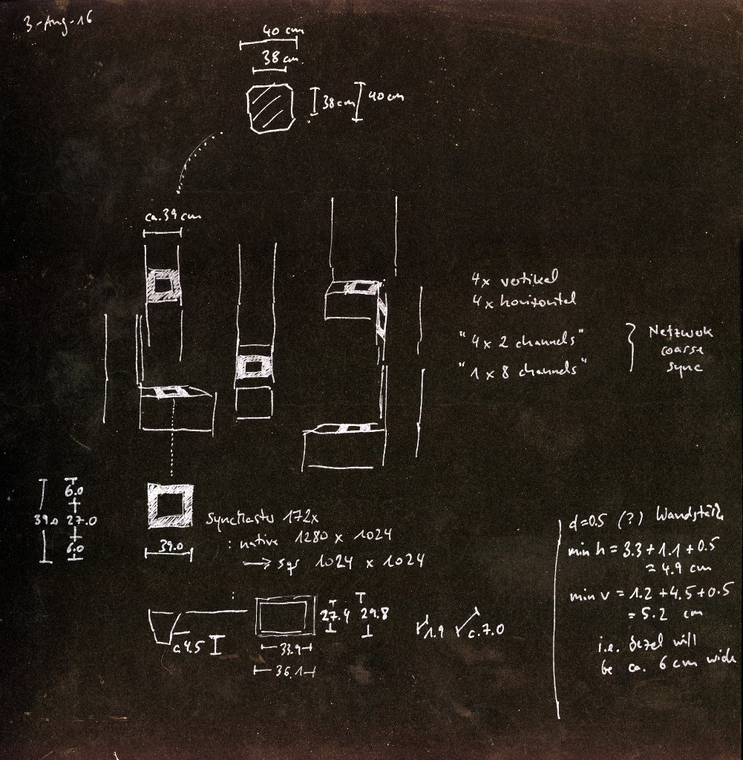 3-Aug-16
40 cm
38 cm
38 cm 40 cm
ca. 39 cm
4x vertikal
4x horizontal
"4 x 2 channels"
"1 x 8 channels"
Netzwerk
coarse
sync
39.0
6.0
27.0
6.0
39.0
SyncMaster 172x
: native 1280 x 1024
→ sys 1024 x 1024
4.5
27.4 29.8
33.9
36.1
1.9 c. 7.0
d=0.5 (?) Wandstärke
min h = 3.3 + 1.1 + 0.5
= 4.9 cm
min v = 1.2 + 4.5 + 0.5
= 5.2 cm
i.e. bezel will
be ca. 6 cm wide